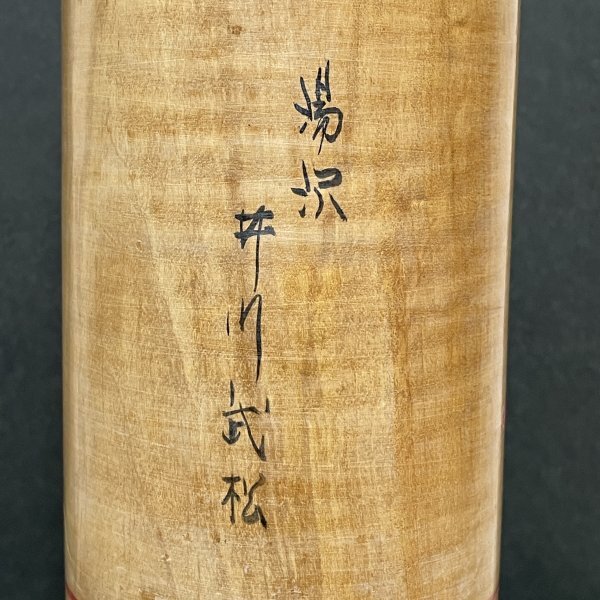 湯沢
井川武松